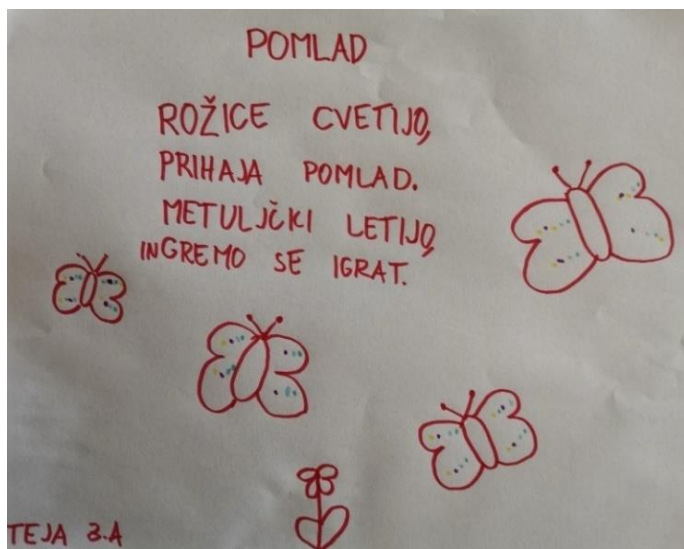 POMLAD
ROŽICE CVETIJO,
PRIHAJA POMLAD.
METULJČKI LETIJO,
INGREMO SE IGRAT.
TEJA 3.A